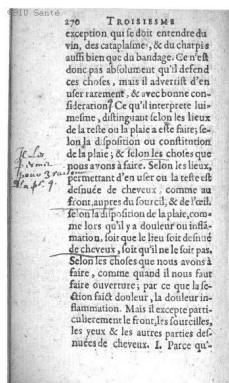 BIU Santé
270 TROISIESME
exception qui se doit entendre du
vin, des cataplasme, & du charpis
aussi bien que du bandage. Ce n'est
donc pas absolument qu'il defend
ces choses, mais il advertist d'en
user rarement, & avec bonne con-
sideration? Ce qu'il interprete lui-
mesme, distinguant selon les lieux
de la teste ou la plaie a esté faite; se-
lon la disposition ou constitution
de la plaie; & selon les choses que
nous avons à faire. Selon les lieux,
permettant d'en user ou la teste est
desnuée de cheveux, comme au
front, aupres du sourcil, & de l'œil.
selon la disposition de la plaie, com-
me lors qu'il y a douleur ou inflã-
mation, soit que le lieu soit desnué
de cheveux, soit qu'il ne le soit pas.
Selon les choses que nous avons à
faire, comme quand il nous faut
faire ouverture; par ce que la se-
ction faict douleur, la douleur in-
flammation. Mais il excepte parti-
culierement le front, les sourcilles,
les yeux & les autres parties des-
nuées de cheveux. I. Parce qu'